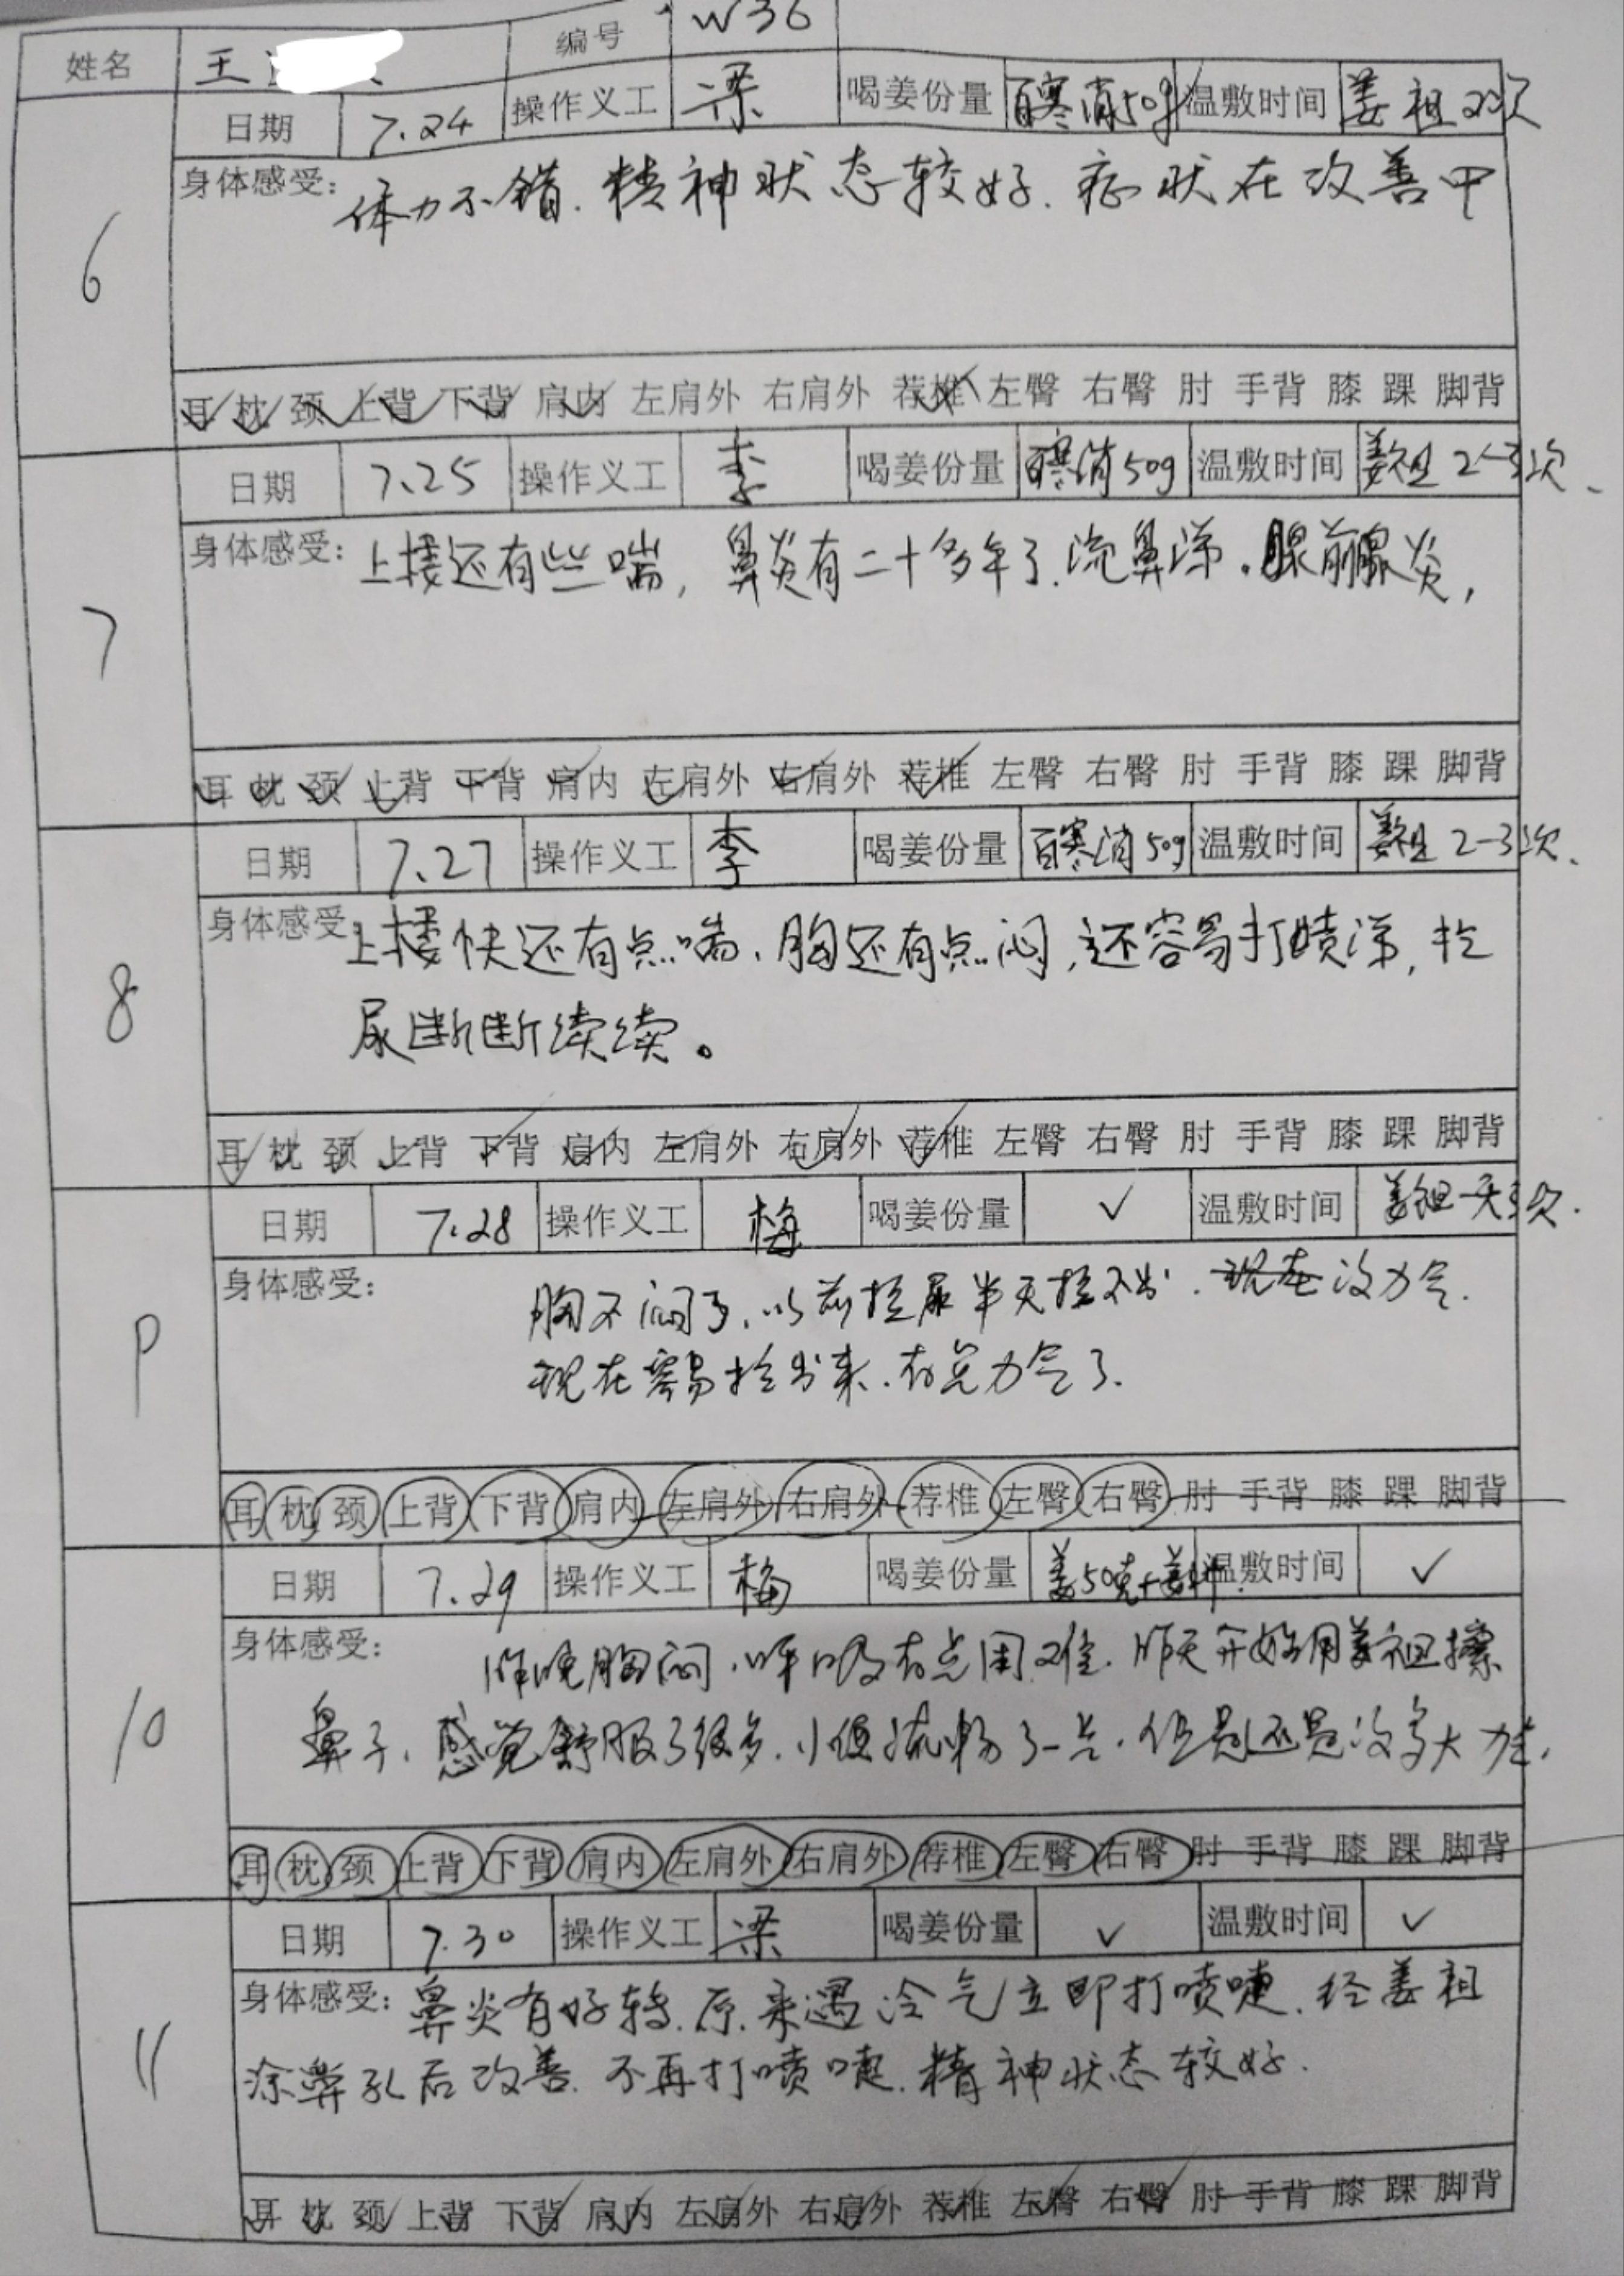 姓名 王 编号 W36
日期 7.24 操作义工 梁 喝姜份量 百寒消50g 温敷时间 姜祖2次
6
身体感受：体力不错.精神状态较好.症状在改善中
耳 枕 颈 上背 下背 肩内 左肩外 右肩外 荐椎 左臀 右臀 肘 手背 膝 踝 脚背
日期 7.25 操作义工 李 喝姜份量 百寒消50g 温敷时间 姜祖2-3次、
7
身体感受：上楼还有些喘，鼻炎有二十多年了.流鼻涕.腺前腺炎，
耳 枕 颈 上背 下背 肩内 左肩外 右肩外 荐椎 左臀 右臀 肘 手背 膝 踝 脚背
日期 7.27 操作义工 李 喝姜份量 百寒消50g 温敷时间 姜祖2-3次、
8
身体感受：上楼快还有点喘、胸还有点闷，还容易打喷涕，拉
尿断断续续。
耳 枕 颈 上背 下背 肩内 左肩外 右肩外 荐椎 左臀 右臀 肘 手背 膝 踝 脚背
日期 7.28 操作义工 梅 喝姜份量 ✓ 温敷时间 姜祖一天3次.
9
身体感受：胸不闷了、以前拉尿半天拉不出.现在没力气.
现在容易拉出来.有点力气了.
耳 枕 颈 上背 下背 肩内 左肩外 右肩外 荐椎 左臀 右臀 肘 手背 膝 踝 脚背
日期 7.29 操作义工 梅 喝姜份量 姜50克+姜 温敷时间 ✓
10
身体感受：昨晚胸闷.呼吸有点困难.昨天开始用姜祖擦
鼻子、感觉舒服了很多.小便流畅了一点.但是还是没多大力气.
耳 枕 颈 上背 下背 肩内 左肩外 右肩外 荐椎 左臀 右臀 肘 手背 膝 踝 脚背
日期 7.30 操作义工 梁 喝姜份量 ✓ 温敷时间 ✓
11
身体感受：鼻炎有好转.原来遇冷气立即打喷嚏.经姜祖
涂鼻孔后改善.不再打喷嚏.精神状态较好.
耳 枕 颈 上背 下背 肩内 左肩外 右肩外 荐椎 左臀 右臀 肘 手背 膝 踝 脚背